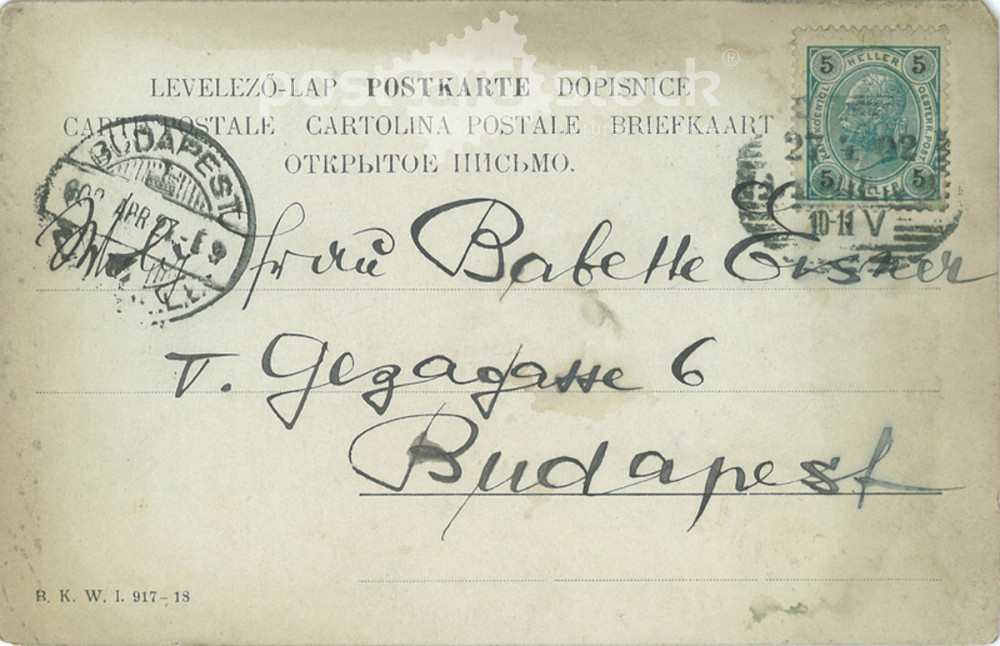 postcard stock ®
LEVELEZŐ-LAP POSTKARTE DOPISNICE
CARTE POSTALE CARTOLINA POSTALE BRIEFKAART
ОТКРЫТОЕ ПИСЬМО.
5 HELLER 5
KAIS. KOENIGL. OESTERR. POST
5 HELLER 5
10-11 V
BUDAPEST
902 APR 27
Frau Babette Eisner
V. Gezagasse 6
Budapest
B. K. W. I. 917-18